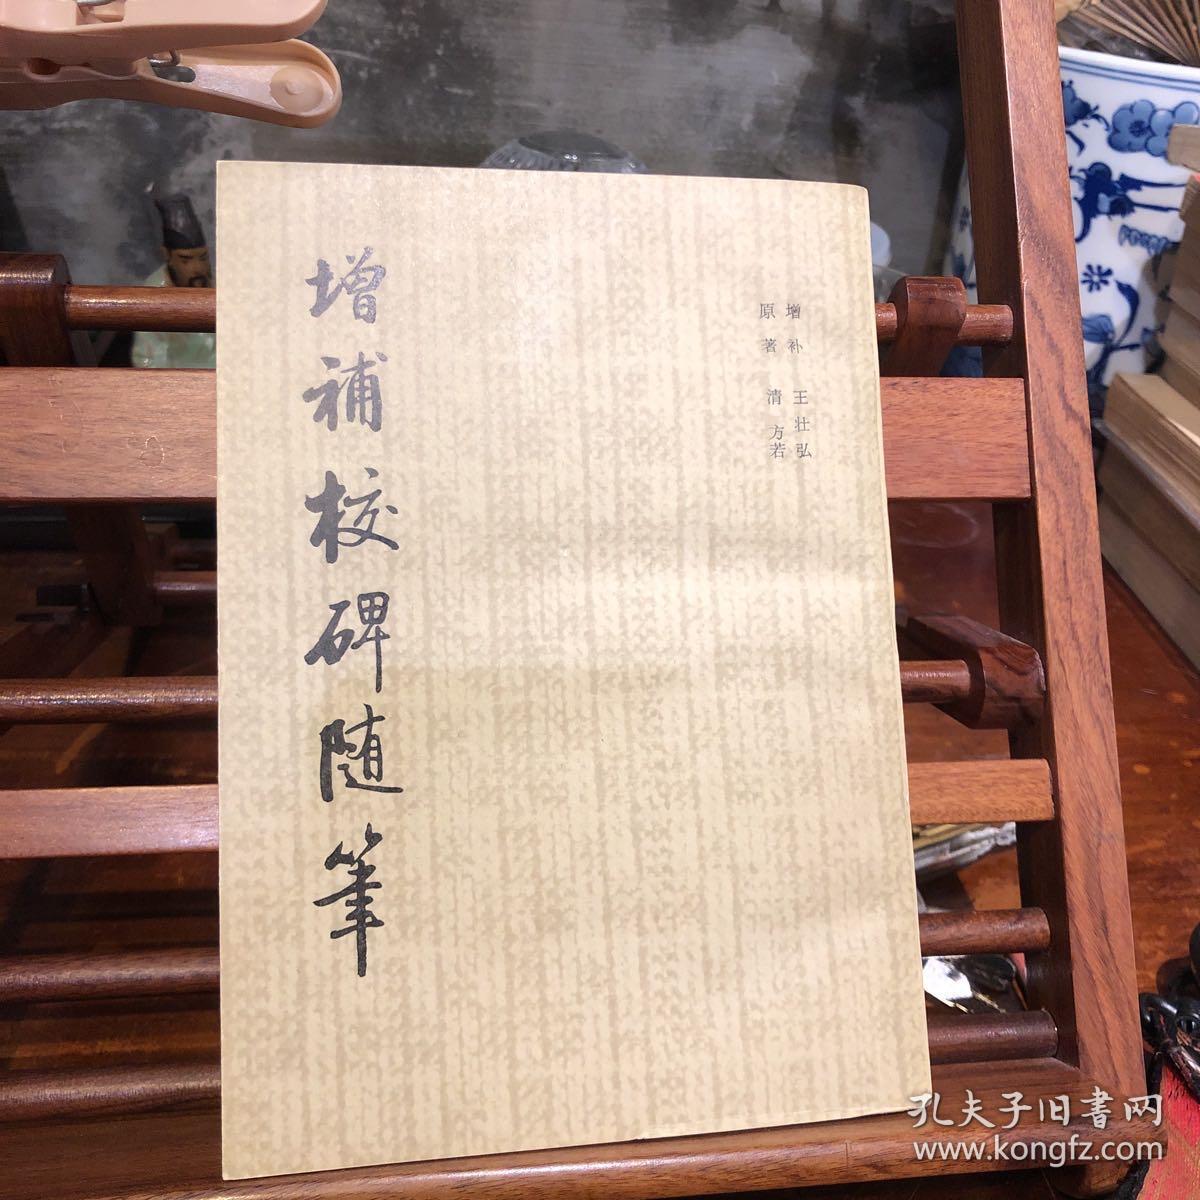 增補校碑随筆
原著 清 方若
增补 王壮弘
孔夫子旧書网
www.kongfz.com